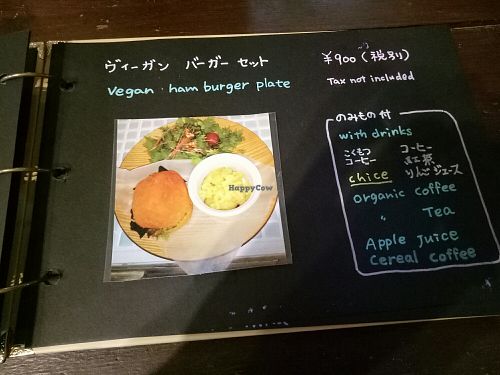 ヴィーガン バーガー セット
Vegan ham burger plate
¥900 (税別)
Tax not included
のみもの付
with drinks
こくもつ コーヒー
コーヒー 紅茶
chice りんごジュース
organic coffee
〃 Tea
Apple juice
Cereal coffee
HappyCow